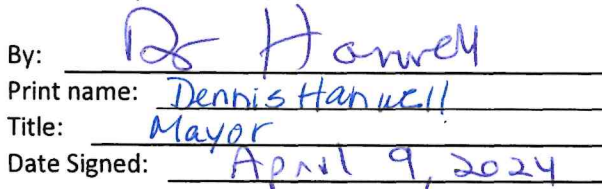 By: D Hanwell
Print name: Dennis Hanwell
Title: Mayor
Date Signed: April 9, 2024